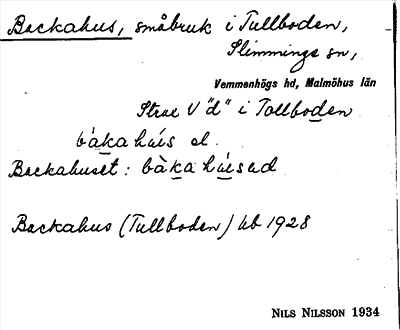 Backahus, småbruk i Tullboden,
Slimminge sn,
Vemmenhögs hd, Malmöhus län
Strax V "d" i Tollboden
bàka háùs el.
Backahuset: bàka háùsəd
Backahus (Tullboden) Ub 1928
NILS NILSSON 1934